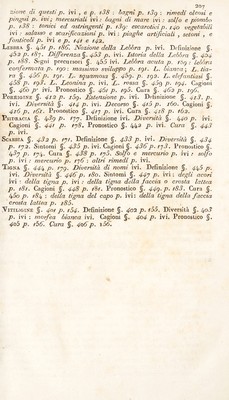 207
zione di questi p. ivi, e p. 138: bagni p. 139: rimedj oleosi e
pingui p. ivi; mercuriali ivi: bagni di mare ivi: solfo e piombo
p. 138: tonici ed astringenti p. 139: escarotici p. 140 vegetabili
ivi: salasso e scarificazioni p. ivi: piaghe artificiali, setoni, e
fonticoli p. ivi e p. 141 e 142.
LEBBRA §. p. 186. Nozione della Lebbra p. ivi. Definizione §.
452 p. 187. Differenza §. 453 p. ivi. Istoria della Lebbra §. 454
p. 188. Segni precursori §. 455 ivi. Lebbra acuta p. 189: lebbra
conformata p. 190: massimo sviluppo p. 191. L. bianca; L. tia-
ra §. 456 p. 191. L. squamosa §. 459. p. 192. L. elefantiasi §.
458 p. 193. L. Leonina p. ivi. L. rossa §. 459 p. 194. Cagioni
§. 460 p. ivi. Pronostico §. 461 p. 195. Cura §. 462 p. 196.
PORRIGINE §. 412 p. 159. Estensione p. ivi. Definizione §. 413. p.
ivi. Diversità §. 414 p. ivi. Decorso §. 415 p. 160. Cagioni §.
416 p. 161. Pronostico §. 417 p. ivi. Cura §. 418 p. 162.
PSYDRACIA §. 439 p. 177. Definizione ivi. Diversità §. 440 p. ivi.
Cagioni §. 441 p. 178. Pronostico §. 442 p. ivi. Cura §. 443
p. ivi.
SCABBIA §. 432 p. 171. Definizione §. 433 p. ivi. Diversità §. 434
p. 172. Sintomi §. 435 p. ivi. Cagioni §. 436 p. 173. Pronostico §.
437 p. 174. Cura §. 438 p. 175. Solfo e mercurio p. ivi: solfo
p. ivi: mercurio p. 176: altri rimedj p. ivi.
TIGNA §. 444 p. 179. Diversità di nomi p. ivi. Definizione §. 445 p.
ivi. Diversità §. 446 p. 180. Sintomi §. 447 p. ivi: degli acori
ivi: della tigna p. ivi: della tigna della faccia o crosta lattea
p. 181. Cagioni §. 448 p. 181. Pronostico §. 449. p. 183. Cura §.
450 p. 184: della tigna del capo p. ivi: della tigna della faccia
crosta lattea p. 185.
VITILIGINE §. 401 p. 154. Definizione §. 402 p. 155. Diversità §. 403
p. ivi: morfea bianca ivi. Cagioni §. 404 p. ivi. Pronostico §.
405 p. 156. Cura §. 406 p. 156.